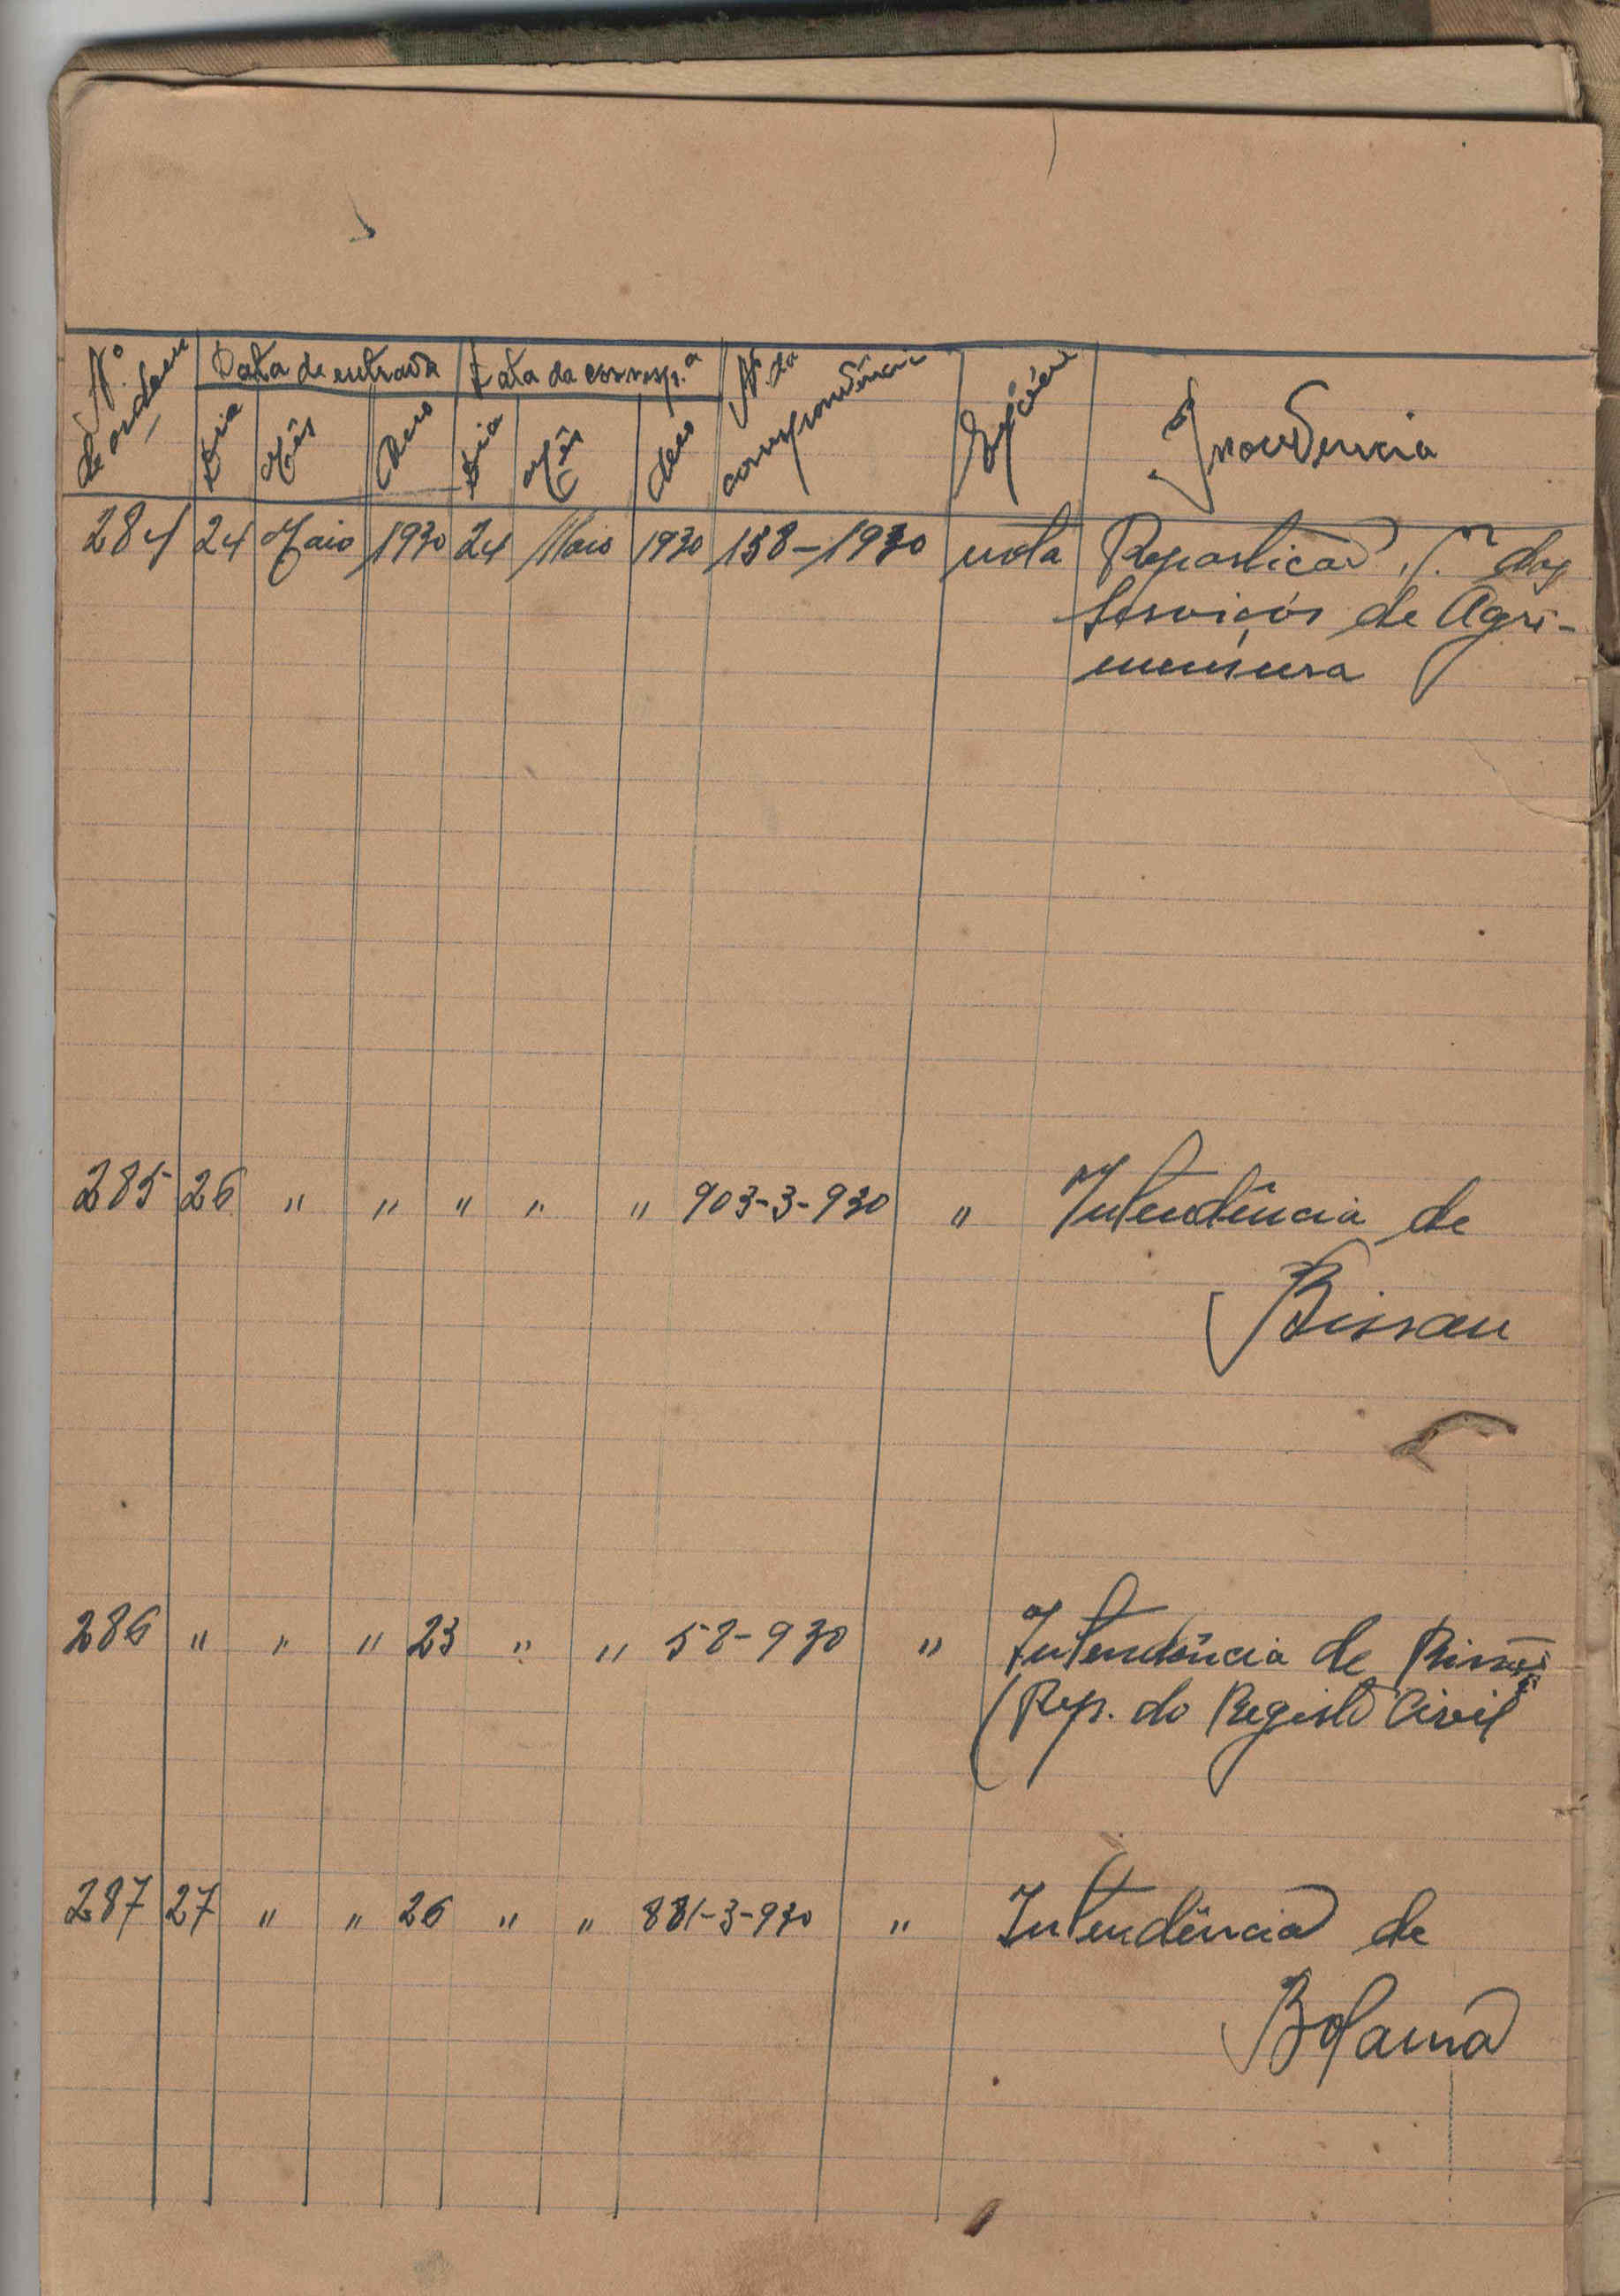 Nº de ordem | Data de entrada | Data da corresp.ª | Nº da correspondência | Espécie | Procedencia
Dia | Mês | Ano | Dia | Mês | Ano
284 | 24 | Maio | 1930 | 24 | Maio | 1930 | 138-1930 | nota | Repartição dos
Serviços de Agri-
mensura
285 | 26 | " | " | " | " | " | 903-3-930 | " | Intendência de
Bissau
286 | " | " | " | 23 | " | " | 58-930 | " | Intendência de Bissau
(Rep. do Registo Civil
287 | 27 | " | " | 26 | " | " | 881-3-930 | " | Intendência de
Bolama